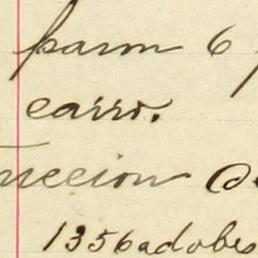 param 6
carro.
nuccion @
1356 adobes